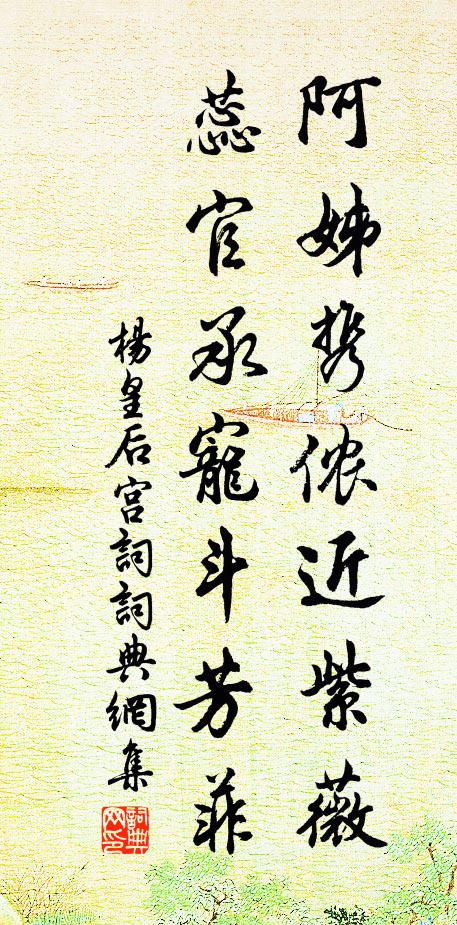 阿姊携侬近紫薇
蕊官承寵斗芳菲
楊皇后宫詞詞典網集
詞典網印